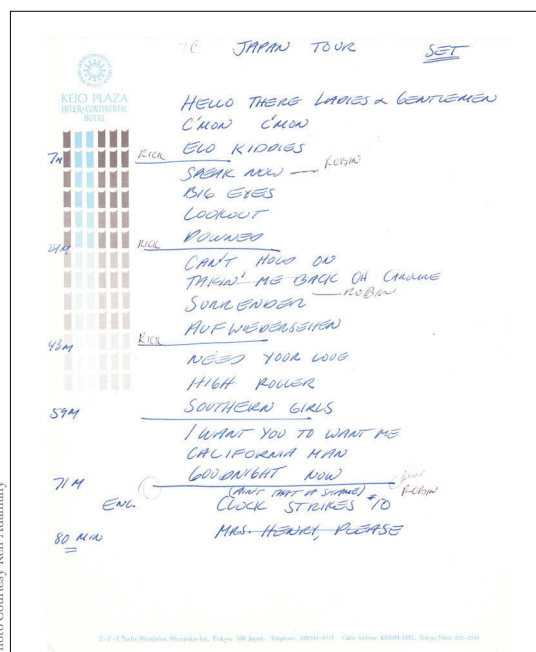 JAPAN TOUR SET
KEIO PLAZA
INTER·CONTINENTAL
HOTEL
HELLO THERE LADIES & GENTLEMEN
C'MON C'MON
7M RICK ELO KIDDIES
SPEAK NOW — ROBIN
BIG EYES
LOOKOUT
RICK DOWNED
CAN'T HOLD ON
TAKIN' ME BACK OH CAROLINE
SURRENDER — ROBIN
AUF WIEDERSEHEN
43M RICK
NEED YOUR LOVE
HIGH ROLLER
59M SOUTHERN GIRLS
I WANT YOU TO WANT ME
CALIFORNIA MAN
71M GOODNIGHT NOW
(AIN'T THAT A SHAME) ROBIN
ENC. CLOCK STRIKES #10
80 MIN MRS. HENRY, PLEASE
2-2-1 Nishi-Shinjuku, Shinjuku-ku, Tokyo, 160 Japan.
Courtesy Ken Adamany